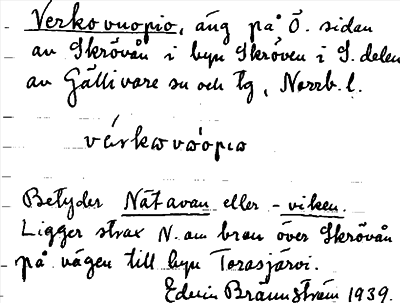 Verkovuopio, äng på Ö. sidan
av Skrövån i byn Skröven i S. delen
av Gällivare sn och tg, Norrb. l.
vérkωvωòpiω
Betyder Nätavan eller -viken.
Ligger strax N. om bron över Skrövån
på vägen till byn Torasjärvi.
Edvin Brännström 1939.